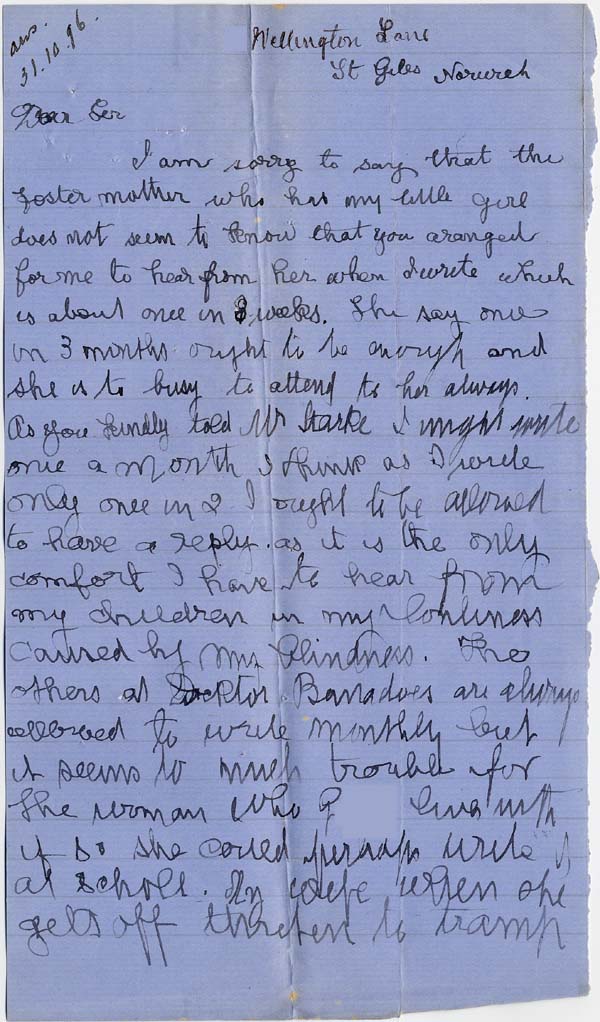 ans.
31.10.96.
Wellington Lane
St Giles Norwich
Dear Sir
I am sorry to say that the
foster mother who has my little girl
does not seem to know that you aranged
for me to hear from her when I write which
is about once in 8 weeks. She say once
in 3 months ought to be enough and
she is to busy to attend to her always.
As you kindly told Mr Starke I might write
once a month I think as I write
only once in 2 I ought to be allowed
to have a reply. as it is the only
comfort I have to hear from
my children in my lonliness
caused by my blindness. The
others at Docktor Barnadoes are always
allowed to write monthly but
it seems to much trouble for
the woman who G lives with
if so she could perhaps write
at scholl. My wife when she
gets off threten to tramp